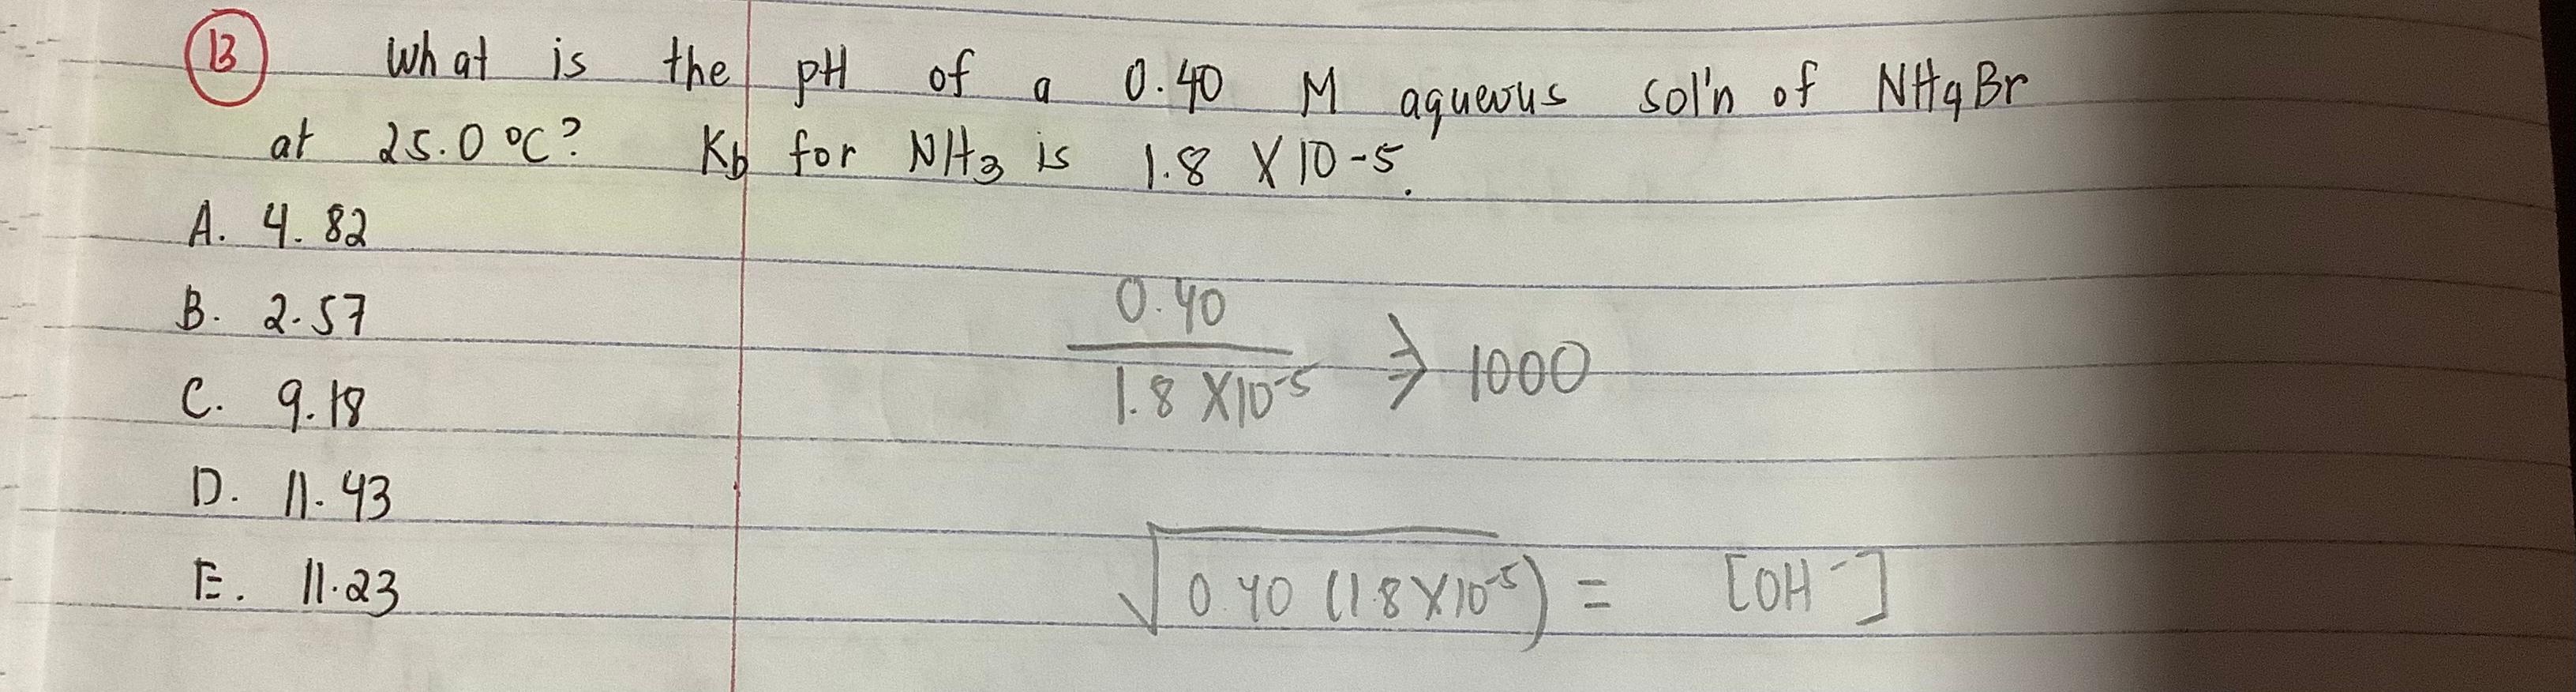 13 What is the pH of a 0.40 M aqueous sol'n of NH4Br
at 25.0 °C? Kb for NH3 is 1.8 X 10-5.
A. 4.82
B. 2.57
C. 9.18
D. 11.43
E. 11.23
0.40
1.8 X10⁻⁵ ⩾ 1000
√0.40 (1.8 X10⁻⁵) = [OH⁻]